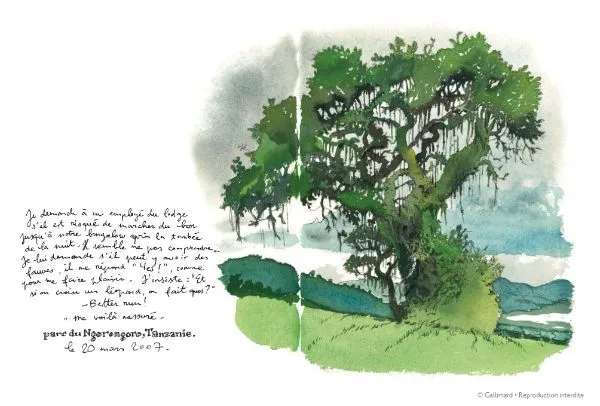 Je demande à un employé du lodge
s'il est risqué de marcher du bar
jusqu'à notre bungalow après la tombée
de la nuit. Il semble ne pas comprendre.
Je lui demande s'il peut y avoir des
fauves, il me répond "Yes!", comme
pour me faire plaisir. J'insiste: "Et
si on croise un léopard, on fait quoi?"
- Better run!
Me voilà rassuré.
parc du Ngorongoro, Tanzanie.
le 20 mars 2007.
© Gallimard • Reproduction interdite